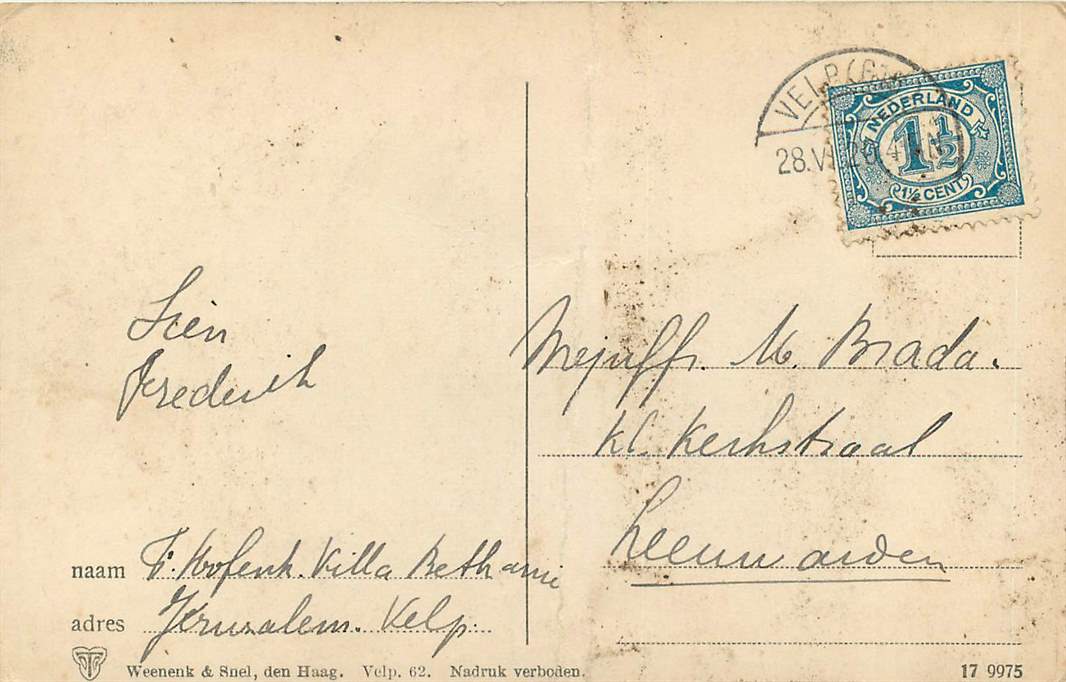 VELP (GLD
28.V
NEDERLAND
1 1/2
1½ CENT
Sien
Frederik
Mejuffr. M. Brada.
Kl. Kerkstraat
Leeuwarden
naam F. Villa Bethanie
adres Jeruzalem. Velp.
Weenenk & Snel, den Haag. Velp. 62. Nadruk verboden.
17 9975